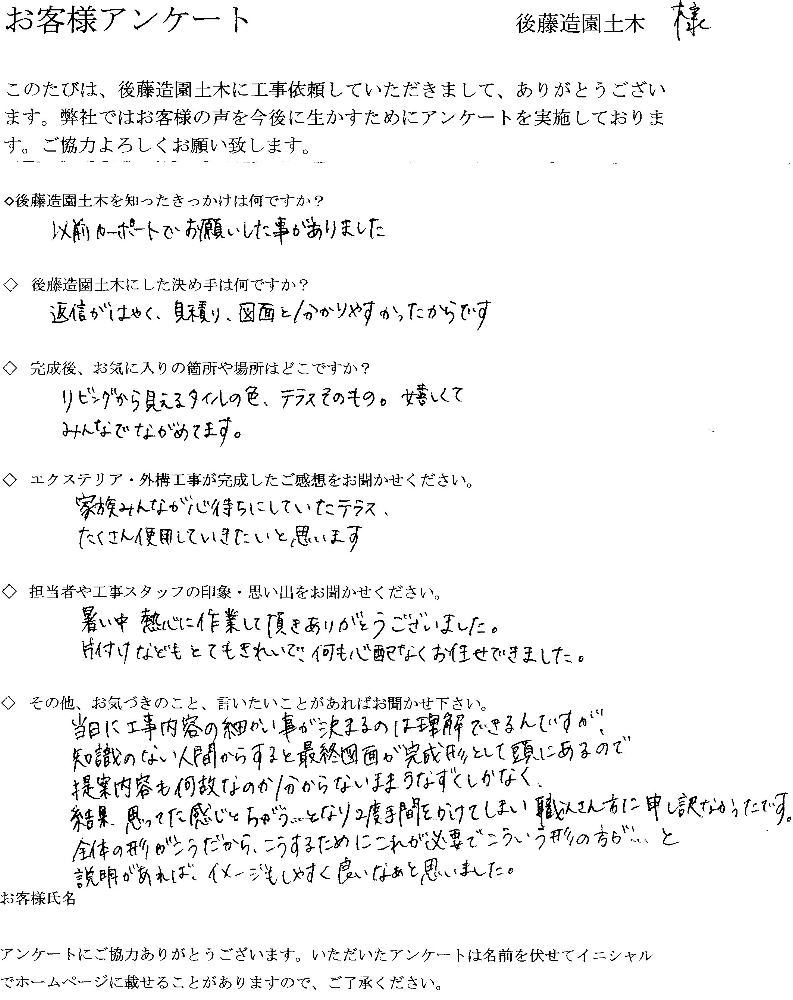 お客様アンケート 後藤造園土木 様
このたびは、後藤造園土木に工事依頼していただきまして、ありがとうござい
ます。弊社ではお客様の声を今後に生かすためにアンケートを実施しておりま
す。ご協力よろしくお願い致します。
◇後藤造園土木を知ったきっかけは何ですか？
以前カーポートでお願いした事がありました
◇ 後藤造園土木にした決め手は何ですか？
返信がはやく、見積り、図面と分かりやすかったからです
◇ 完成後、お気に入りの箇所や場所はどこですか？
リビングから見えるタイルの色、テラスそのもの。嬉しくて
みんなでながめてます。
◇ エクステリア・外構工事が完成したご感想をお聞かせください。
家族みんなが心待ちにしていたテラス、
たくさん使用していきたいと思います
◇ 担当者や工事スタッフの印象・思い出をお聞かせください。
暑い中 熱心に作業して頂きありがとうございました。
片付けなどもとてもきれいで、何も心配なくお任せできました。
◇ その他、お気づきのこと、言いたいことがあればお聞かせ下さい。
当日に工事内容の細かい事が決まるのは理解できるんですが、
知識のない人間からすると最終図面が完成形として頭にあるので
提案内容も何故なのか分からないままうなずくしかなく、
結果、思ってた感じとちがう…となり2度手間をかけてしまい職人さん方に申し訳なかったです。
全体の形がこうだから、こうするためにこれが必要でこういう形の方が…と
説明があれば、イメージもしやすく良いなぁと思いました。
お客様氏名
アンケートにご協力ありがとうございます。いただいたアンケートは名前を伏せてイニシャル
でホームページに載せることがありますので、ご了承ください。